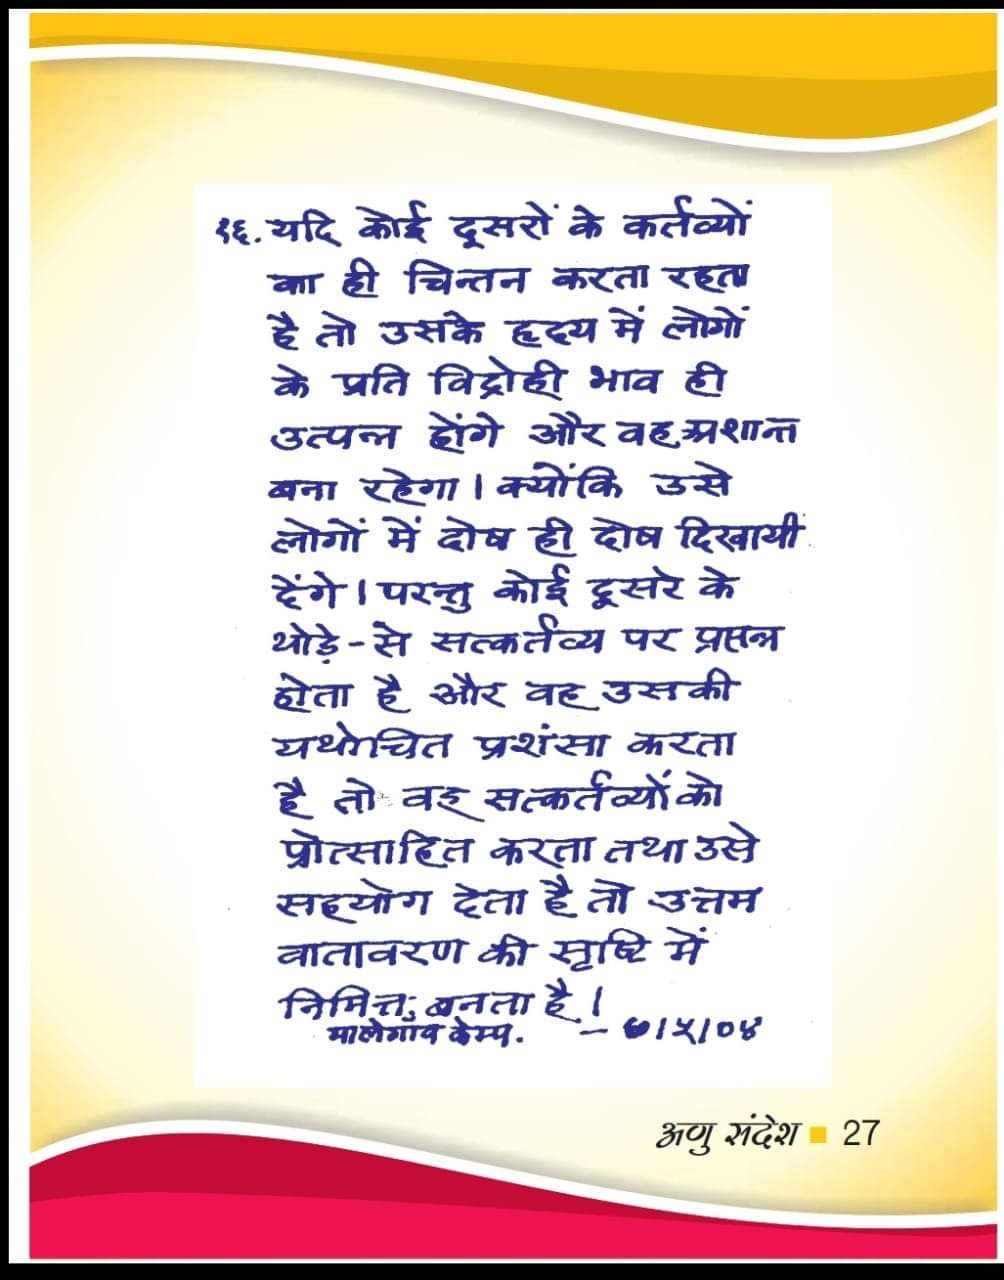 १६. यदि कोई दूसरों के कर्तव्यों
का ही चिन्तन करता रहता
है तो उसके हृदय में लोगों
के प्रति विद्रोही भाव ही
उत्पन्न होंगे और वह अशान्त
बना रहेगा। क्योंकि उसे
लोगों में दोष ही दोष दिखायी
देंगे। परन्तु कोई दूसरे के
थोड़े-से सत्कर्तव्य पर प्रसन्न
होता है और वह उसकी
यथोचित प्रशंसा करता
है तो वह सत्कर्तव्यों को
प्रोत्साहित करता तथा उसे
सहयोग देता है तो उत्तम
वातावरण की सृष्टि में
निमित्त बनता है।
मालेगांव केम्प. - ७/५/०४
अणु संदेश ■ 27